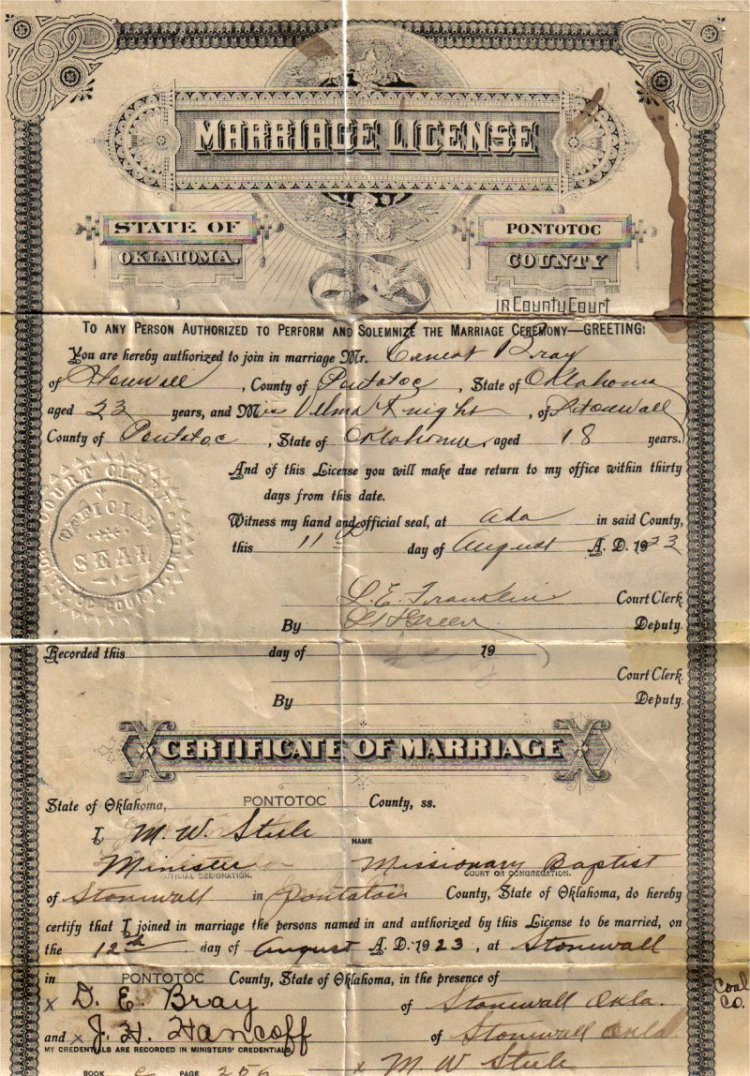 MARRIAGE LICENSE
STATE OF OKLAHOMA.
PONTOTOC COUNTY
in County Court
TO ANY PERSON AUTHORIZED TO PERFORM AND SOLEMNIZE THE MARRIAGE CEREMONY—GREETING:
You are hereby authorized to join in marriage Mr. Ernest Bray
of Stonwall, County of Pontotoc, State of Oklahoma
aged 23 years, and Miss Velma Knight, of Stonwall
County of Pontotoc, State of Oklahoma, aged 18 years.
And of this License you will make due return to my office within thirty
days from this date.
Witness my hand and official seal, at Ada in said County,
this 11th day of August A. D. 1923
L. E. Franklin Court Clerk
By Green Deputy.
Recorded this day of 19
Court Clerk
By Deputy.
COURT CLERK
OFFICIAL
SEAL
PONTOTOC COUNTY
CERTIFICATE OF MARRIAGE
State of Oklahoma, PONTOTOC County, ss.
I, M. W. Steele
NAME
Minister Missionary Baptist
OFFICIAL DESIGNATION. COURT OR CONGREGATION.
of Stonwall in Pontotoc County, State of Oklahoma, do hereby
certify that I joined in marriage the persons named in and authorized by this License to be married, on
the 12th day of August A. D. 1923, at Stonwall
in PONTOTOC County, State of Oklahoma, in the presence of
x D. E. Bray of Stonwall Okla. Coal Co.
and x J. H. Hancoff of Stonwall Okla.
MY CREDENTIALS ARE RECORDED IN MINISTERS' CREDENTIALS x M. W. Steele
BOOK e PAGE 256